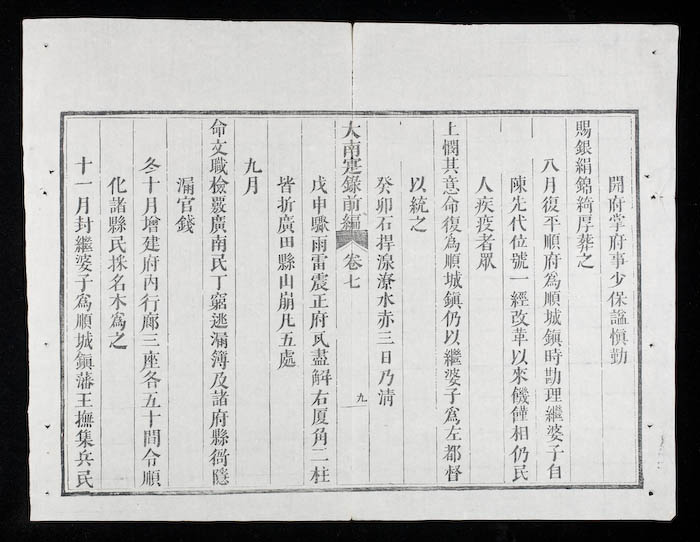 開府掌府事少保謚愼勤
賜銀絹錦綺厚葬之
八月復平順府爲順城鎭時勘理繼婆子自
陳先代位號一經改革以來饑饉相仍民
人疾疫者眾
上憫其意命復爲順城鎭仍以繼婆子爲左都督
以統之
癸卯石捍湶潦水赤三日乃淸
大南寔錄前編 卷七 九
戊申驟雨雷震正府瓦盡解右厦角二柱
皆折廣田縣山崩凡五處
九月
命文職檢覈廣南民丁窮逃漏簿及諸府縣衙隱
漏官錢
冬十月增建府內行廊三座各五十間令順
化諸縣民採名木爲之
十一月封繼婆子爲順城鎭藩王撫集兵民